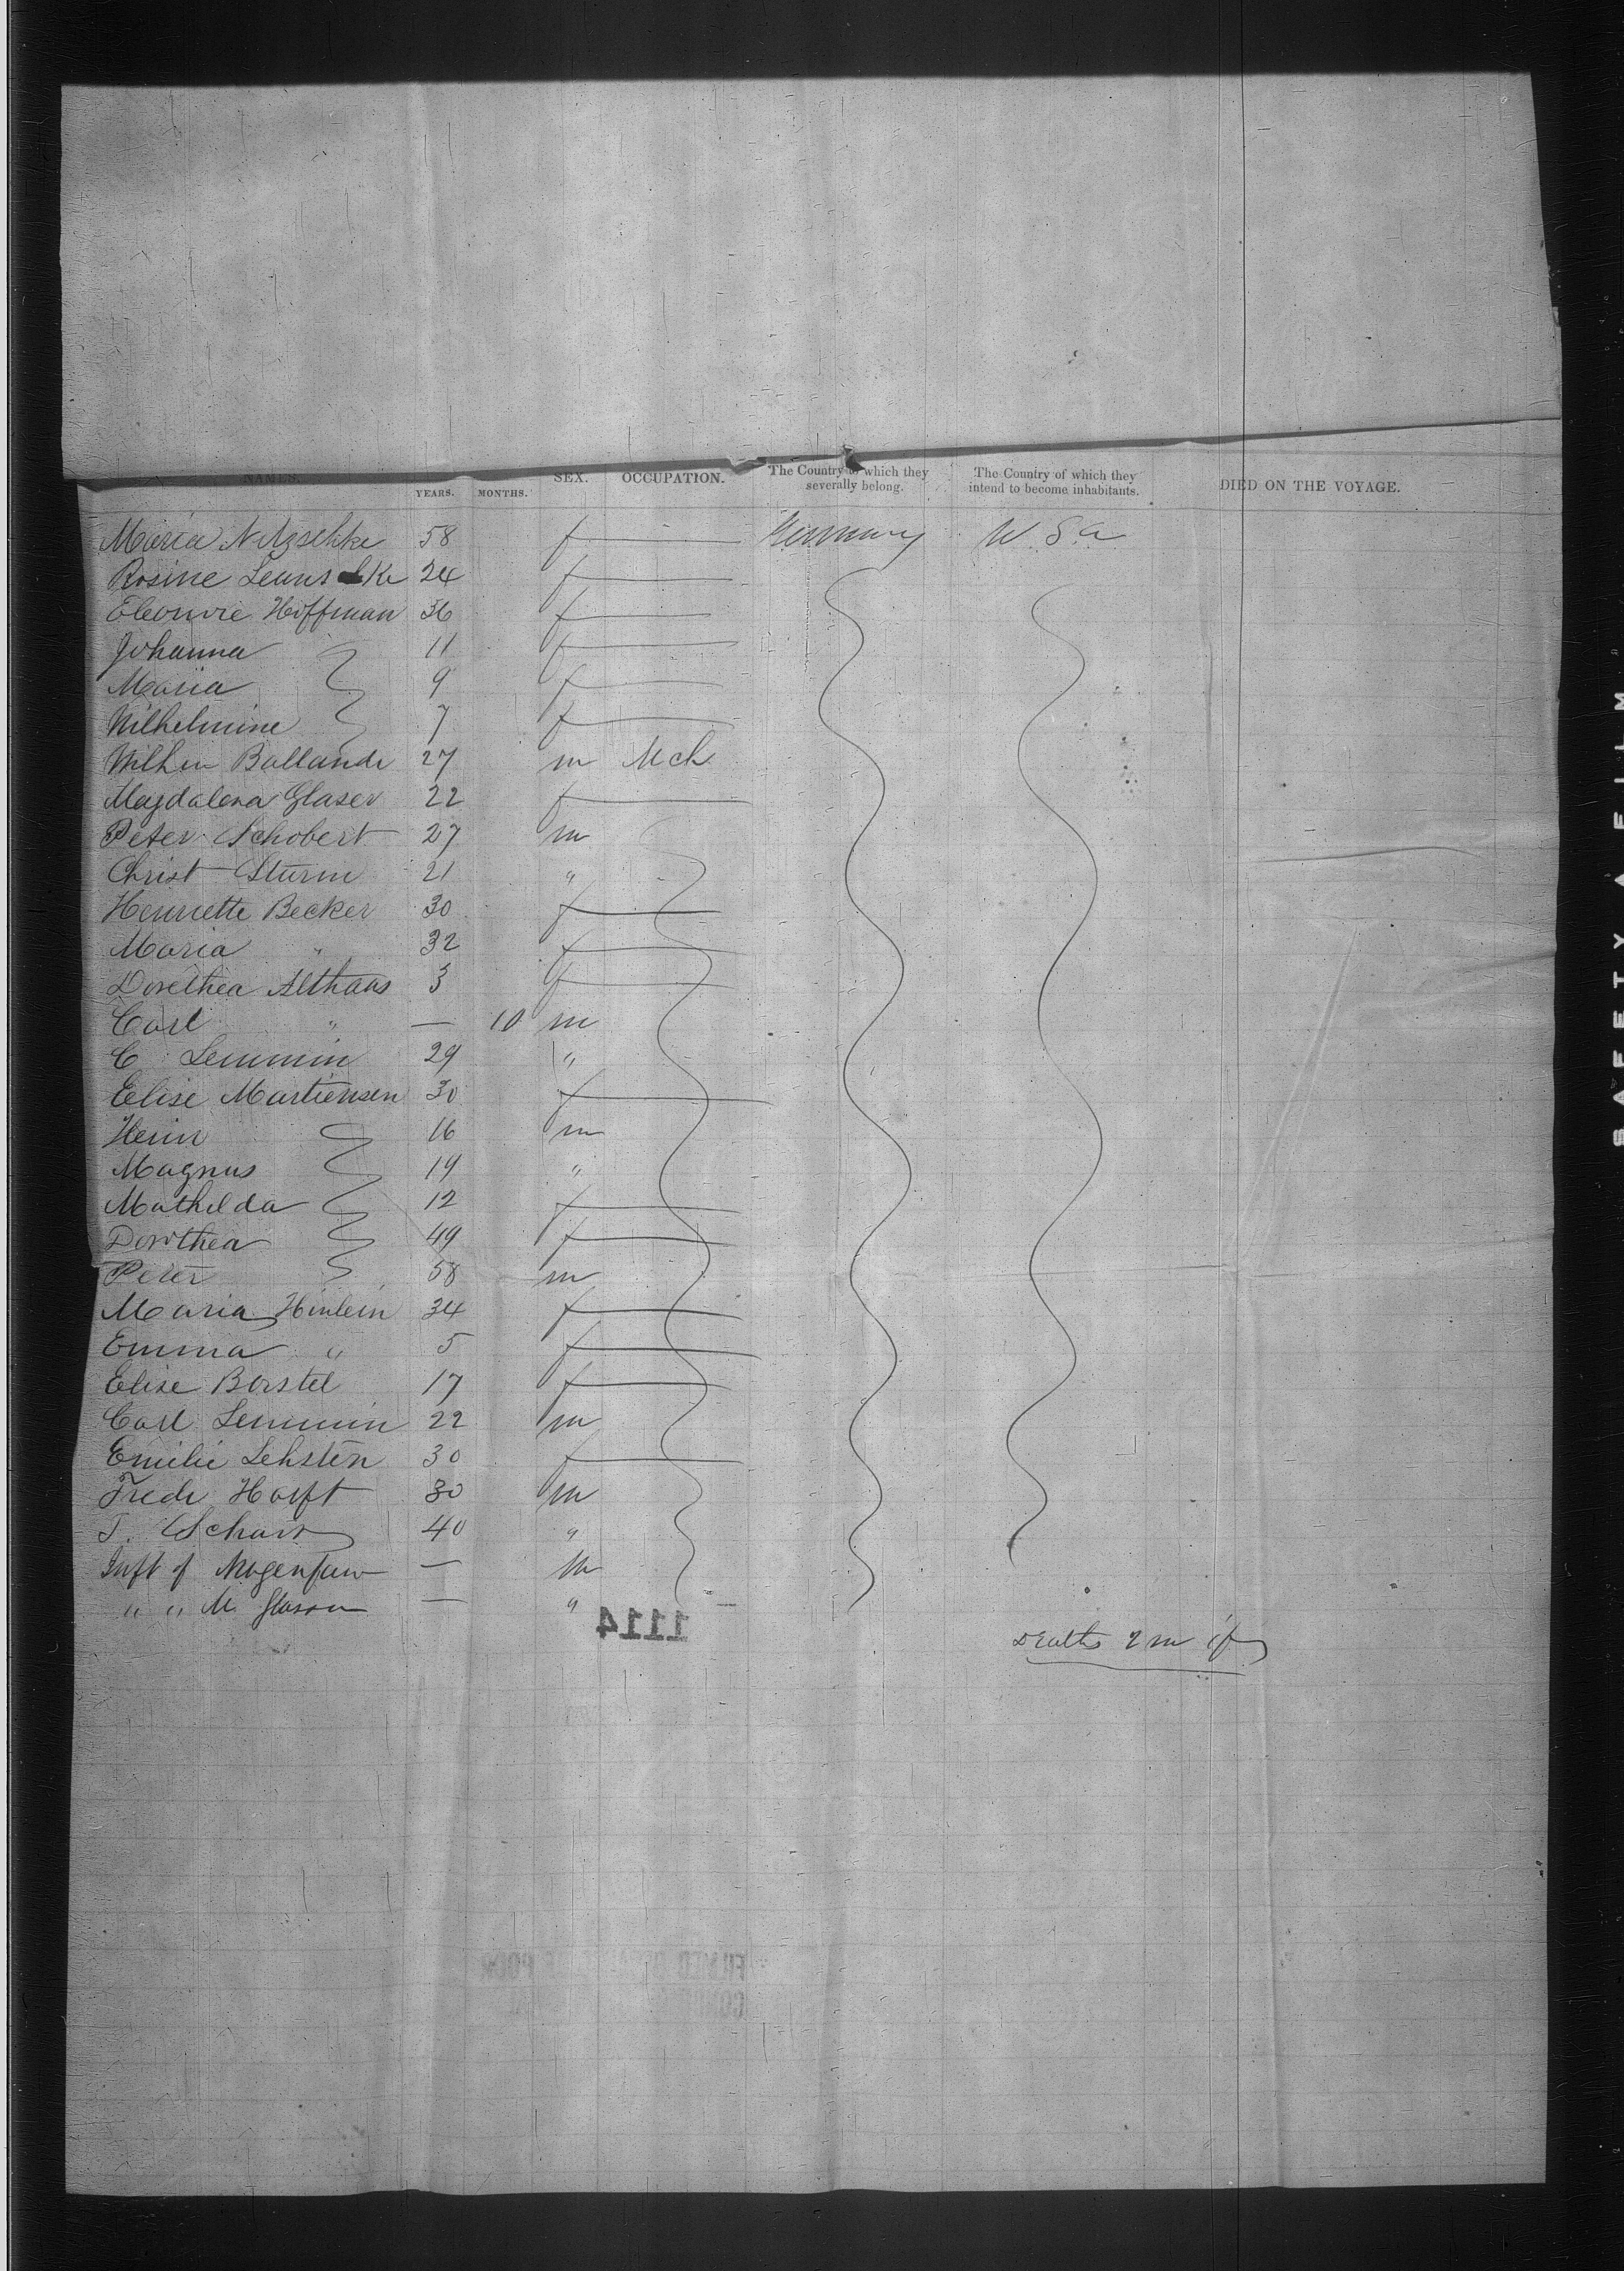 NAMES. YEARS. MONTHS. SEX. OCCUPATION. The Country to which they severally belong. The Country of which they intend to become inhabitants. DIED ON THE VOYAGE.
Maria Nitzschke 58 f Germany U S a
Rosine 24 f
Eleonore Hoffman 36 f
Johanna 11 f
Maria 9 f
Wilhelmine 7 f
Wilhm Ballande 27 m Mch
Magdalena Glaser 22 f
Peter Schobert 27 m
Christ Sturm 21 "
Henriette Becker 30 f
Maria " 32 f
Dorethea Althaus 3 f
Carl " — 10 m
C Lemmin 29 "
Elise Martiensen 30 f
Heinr 16 m
Magnus 19 "
Mathilda 12 f
Dorothea 49 f
Peter 58 m
Maria Heinlein 34 f
Emma " 5 f
Elise Borstel 17 f
Carl Lemmin 22 m
Emilie Lehsten 30 f
Fredr Harft 30 m
J. 40 "
Inft of — m
" " M. — "
1114
Deaths 2 m 1 f
SAFETY FILM